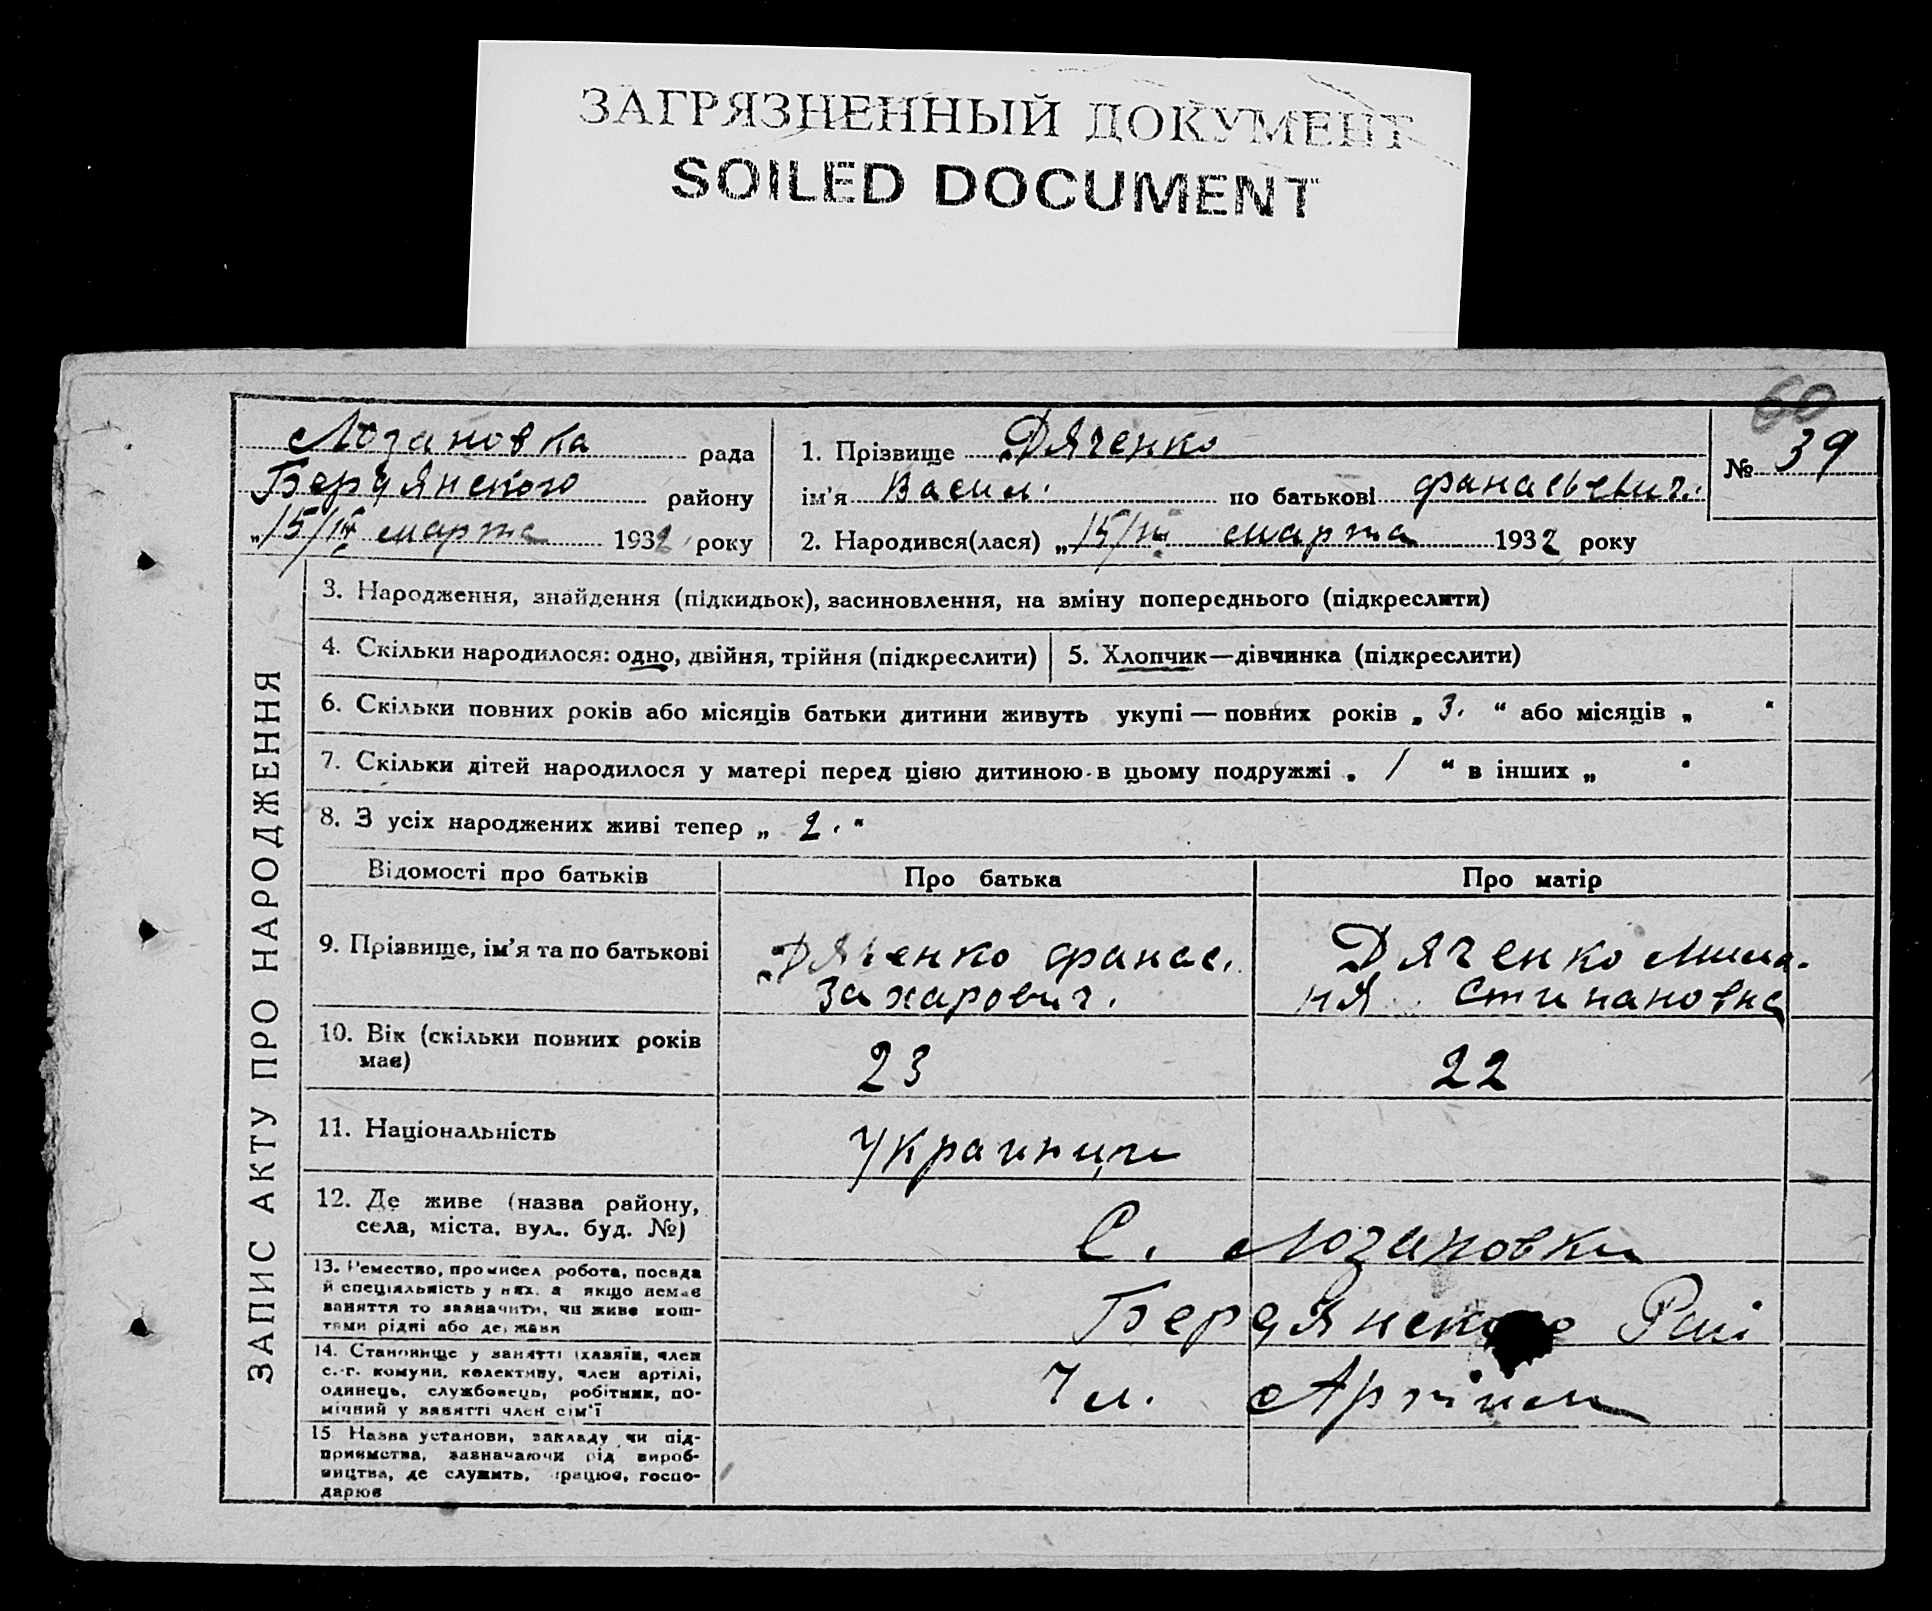 ЗАГРЯЗНЕННЫЙ ДОКУМЕНТ
SOILED DOCUMENT
60
Лозановка рада
Бердянского району
„15/III марта 1932 року
1. Прізвище Дяченко
ім'я Васил. по батькові Фанасьевич.
№ 39
2. Народився(лася) „15/III марта 1932 року
ЗАПИС АКТУ ПРО НАРОДЖЕННЯ
3. Народження, знайдення (підкидьок), засиновлення, на зміну попереднього (підкреслити)
4. Скільки народилося: одно, двійня, трійня (підкреслити)
5. Хлопчик—дівчинка (підкреслити)
6. Скільки повних років або місяців батьки дитини живуть укупі — повних років „ 3. “ або місяців „ “
7. Скільки дітей народилося у матері перед цією дитиною в цьому подружжі „ 1 “ в інших „ “
8. З усіх народжених живі тепер „ 2. “
Відомості про батьків Про батька Про матір
9. Прізвище, ім'я та по батькові
Дяченко Фанас.
Захарович.
Дяченко Мила-
ня Стипановна
10. Вік (скільки повних років
має)
23
22
11. Національність
Украинци
12. Де живе (назва району,
села, міста, вул., буд. №)
С. Лозановки
13. Ремество, промисел робота, посада
й спеціяльність у них, а якщо немає
заняття то зазначити, чи живе кош-
тами рідні або держави
Бердянского Рай
14. Становище у занятті (хазяїн, член
с.-г. комуни, колективу, член артілі,
одинець, службовець, робітник, по-
мічний у занятті член сім'ї
Чл. Артіли
15. Назва установи, закладу чи під-
приємства, зазначаючи рід вироб-
ництва, де служить, працює, госпо-
дарює